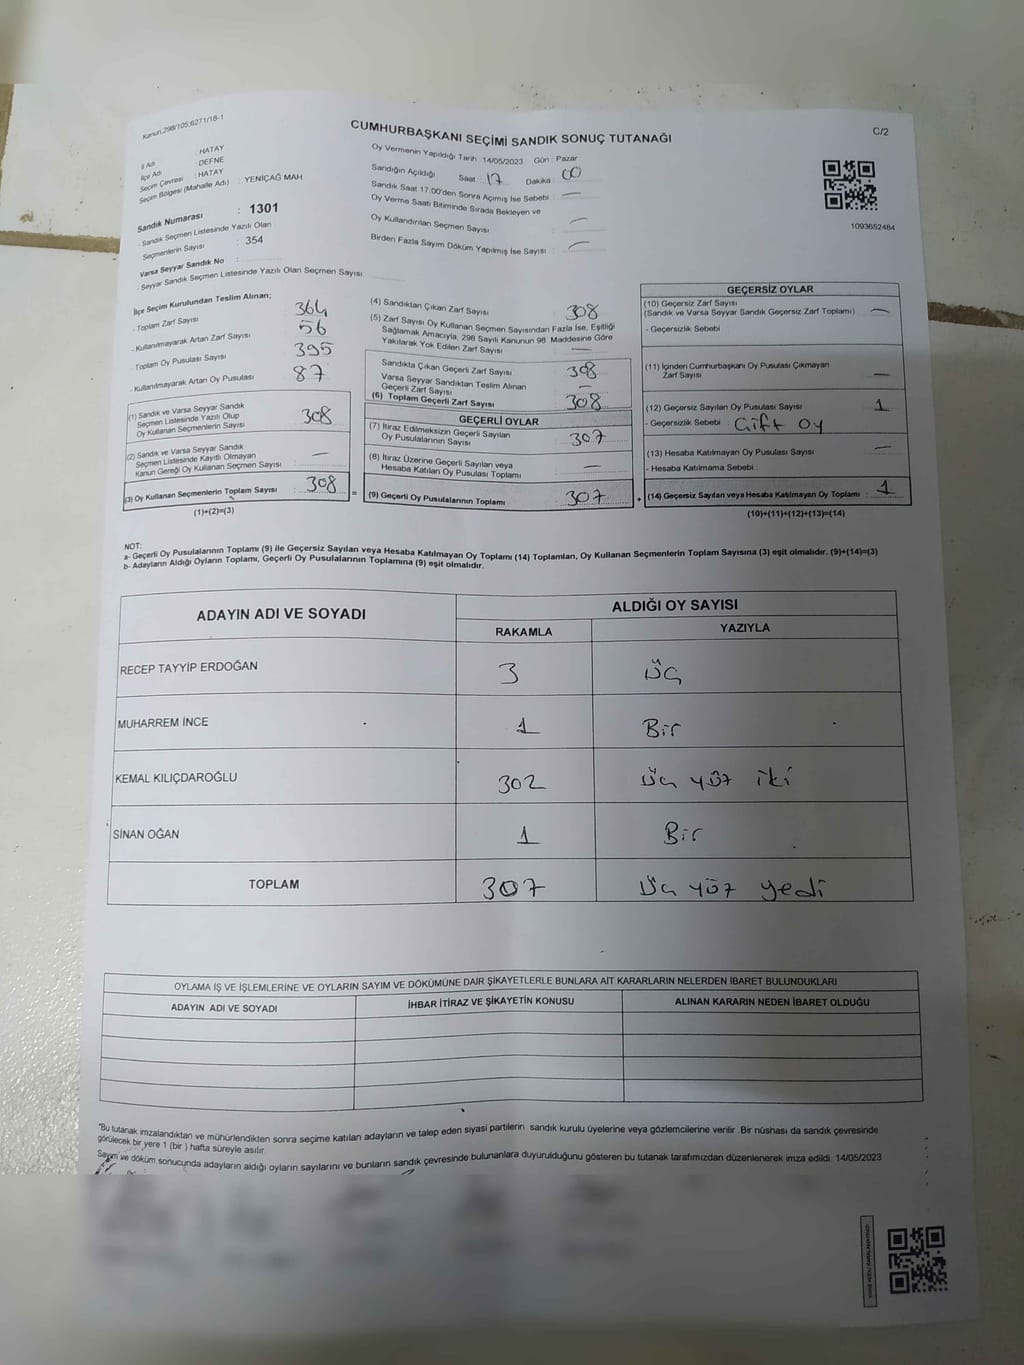 Kanun;298/105;6271/18-1
CUMHURBAŞKANI SEÇİMİ SANDIK SONUÇ TUTANAĞI
C/2
İl Adı HATAY
İlçe Adı DEFNE
Seçim Çevresi : HATAY
Seçim Bölgesi (Mahalle Adı) : YENİÇAĞ MAH.
Sandık Numarası : 1301
- Sandık Seçmen Listesinde Yazılı Olan
Seçmenlerin Sayısı : 354
Varsa Seyyar Sandık No :
- Seyyar Sandık Seçmen Listesinde Yazılı Olan Seçmen Sayısı
Oy Vermenin Yapıldığı Tarih : 14/05/2023 Gün : Pazar
Sandığın Açıldığı Saat : 17 Dakika : 00
Sandık Saat 17:00'den Sonra Açımış İse Sebebi : —
Oy Verme Saati Bitiminde Sırada Bekleyen ve
Oy Kullandırılan Seçmen Sayısı : —
Birden Fazla Sayım Döküm Yapılmış İse Sayısı : —
1093652484
İlçe Seçim Kurulundan Teslim Alınan;
- Toplam Zarf Sayısı 364
- Kullanılmayarak Artan Zarf Sayısı 56
- Toplam Oy Pusulası Sayısı 395
- Kullanılmayarak Artan Oy Pusulası 87
(1) Sandık ve Varsa Seyyar Sandık
Seçmen Listesinde Yazılı Olup
Oy Kullanan Seçmenlerin Sayısı 308
(2) Sandık ve Varsa Seyyar Sandık
Seçmen Listesinde Kayıtlı Olmayan
Kanun Gereği Oy Kullanan Seçmen Sayısı —
(3) Oy Kullanan Seçmenlerin Toplam Sayısı : 308
(1)+(2)=(3)
(4) Sandıktan Çıkan Zarf Sayısı 308
(5) Zarf Sayısı Oy Kullanan Seçmen Sayısından Fazla İse, Eşitliği
Sağlamak Amacıyla, 298 Sayılı Kanunun 98. Maddesine Göre
Yakılarak Yok Edilen Zarf Sayısı —
Sandıkta Çıkan Geçerli Zarf Sayısı 308
Varsa Seyyar Sandıktan Teslim Alınan
Geçerli Zarf Sayısı —
(6) Toplam Geçerli Zarf Sayısı 308
GEÇERLİ OYLAR
(7) İtiraz Edilmeksizin Geçerli Sayılan
Oy Pusulalarının Sayısı 307
(8) İtiraz Üzerine Geçerli Sayılan veya
Hesaba Katılan Oy Pusulası Toplamı —
= (9) Geçerli Oy Pusulalarının Toplamı 307
GEÇERSİZ OYLAR
(10) Geçersiz Zarf Sayısı
(Sandık ve Varsa Seyyar Sandık Geçersiz Zarf Toplamı) : —
- Geçersizlik Sebebi
(11) İçinden Cumhurbaşkanı Oy Pusulası Çıkmayan
Zarf Sayısı —
(12) Geçersiz Sayılan Oy Pusulası Sayısı 1
- Geçersizlik Sebebi : Çift Oy
(13) Hesaba Katılmayan Oy Pusulası Sayısı —
- Hesaba Katılmama Sebebi :
+ (14) Geçersiz Sayılan veya Hesaba Katılmayan Oy Toplamı : 1
(10)+(11)+(12)+(13)=(14)
NOT:
a- Geçerli Oy Pusulalarının Toplamı (9) ile Geçersiz Sayılan veya Hesaba Katılmayan Oy Toplamı (14) Toplamları, Oy Kullanan Seçmenlerin Toplam Sayısına (3) eşit olmalıdır. (9)+(14)=(3)
b- Adayların Aldığı Oyların Toplamı, Geçerli Oy Pusulalarının Toplamına (9) eşit olmalıdır.
ADAYIN ADI VE SOYADI ALDIĞI OY SAYISI
RAKAMLA YAZIYLA
RECEP TAYYİP ERDOĞAN 3 Üç
MUHARREM İNCE 1 Bir
KEMAL KILIÇDAROĞLU 302 Üç yüz iki
SİNAN OĞAN 1 Bir
TOPLAM 307 Üç yüz yedi
OYLAMA İŞ VE İŞLEMLERİNE VE OYLARIN SAYIM VE DÖKÜMÜNE DAİR ŞİKAYETLERLE BUNLARA AİT KARARLARIN NELERDEN İBARET BULUNDUKLARI
ADAYIN ADI VE SOYADI İHBAR İTİRAZ VE ŞİKAYETİN KONUSU ALINAN KARARIN NEDEN İBARET OLDUĞU
"Bu tutanak imzalandıktan ve mühürlendikten sonra seçime katılan adayların ve talep eden siyasi partilerin sandık kurulu üyelerine veya gözlemcilerine verilir .Bir nüshası da sandık çevresinde
görülecek bir yere 1 (bir ) hafta süreyle asılır.
Sayım ve döküm sonucunda adayların aldığı oyların sayılarını ve bunların sandık çevresinde bulunanlara duyurulduğunu gösteren bu tutanak tarafımızdan düzenlenerek imza edildi. 14/05/2023